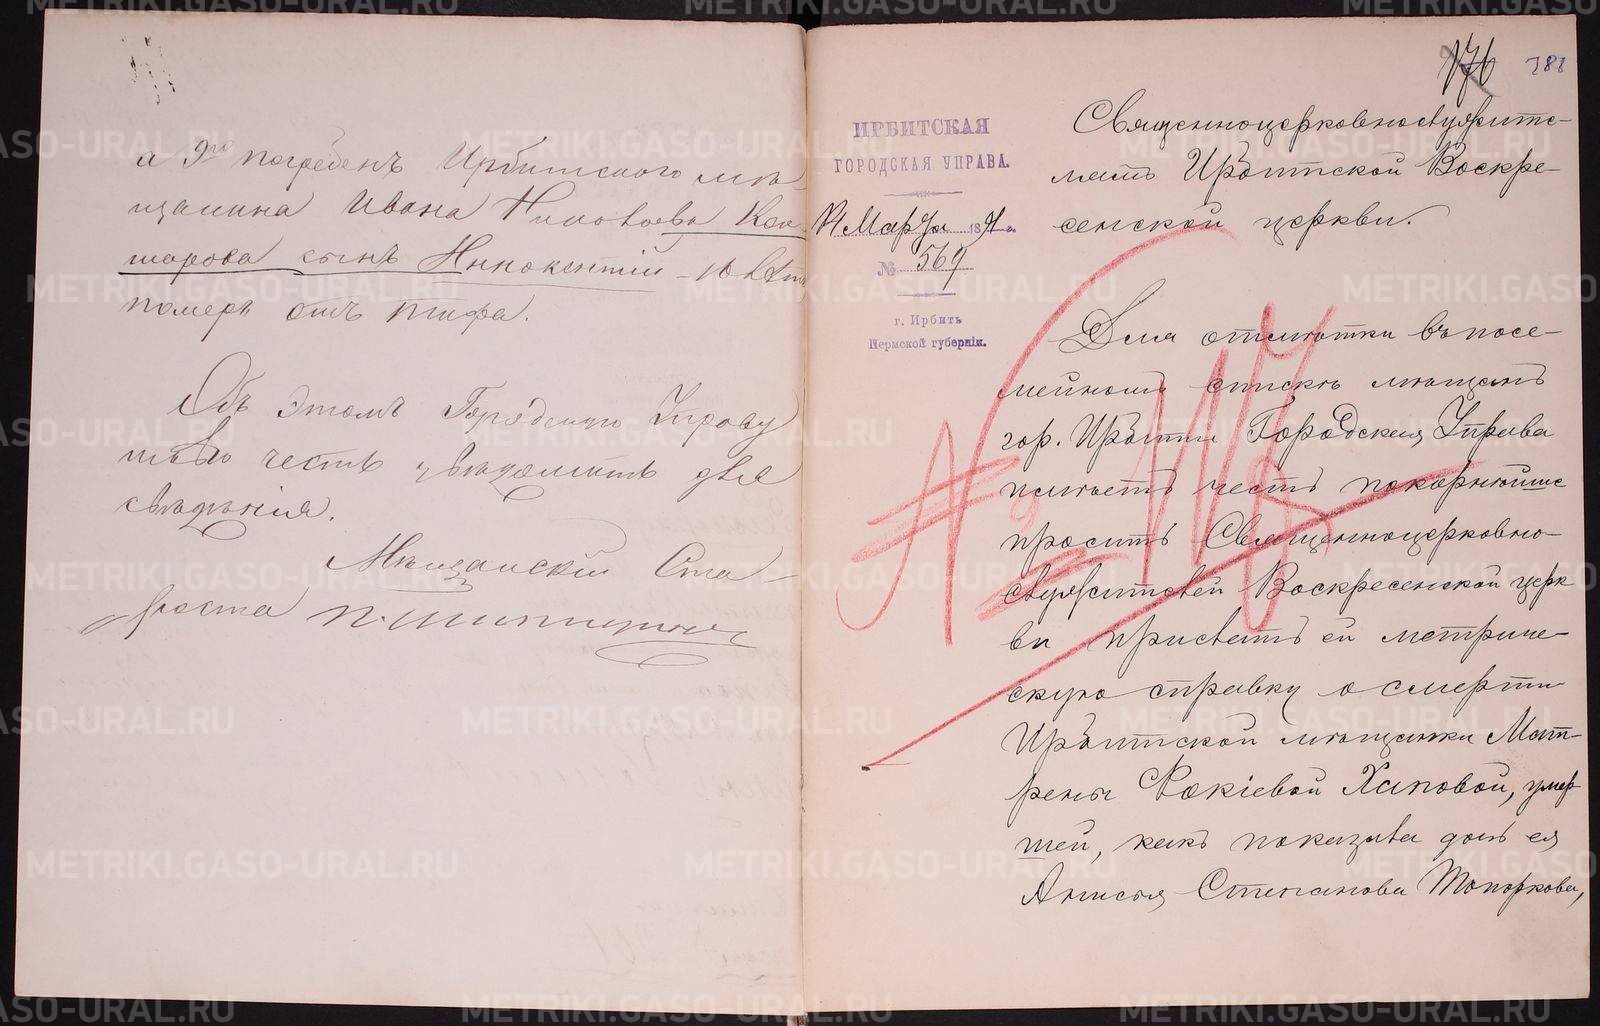 а 9го погребенъ Ирбитскаго мѣ-
щанина Ивана Кон-
шарова сынъ Иннокентій – 16 лѣтъ
померъ отъ тифа.
Объ этомъ Городскую Управу
имѣю честь увѣдомить для
свѣдѣнія.
Мѣщанскій Ста-
роста П.
176 388
ИРБИТСКАЯ
ГОРОДСКАЯ УПРАВА.
14 Марта 1891 г.
№ 569
г. Ирбитъ
Пермской губерніи.
Священноцерковнослужите-
лямъ Ирбитской Воскре-
сенской церкви.
Для отмѣтки въ посе-
мейномъ спискѣ мѣщанъ
гор. Ирбити Городская Управа
имѣетъ честь покорнѣйше
просить Священноцерковно-
служителей Воскресенской церк
ви прислать ей метриче-
скую справку о смерти
Ирбитской мѣщанки Мат-
рены Фокіевой Хаповой, умер-
шей, какъ показала дочь ея
Анисья Степанова Топоркова,
№ 113
METRIKI.GASO-URAL.RU